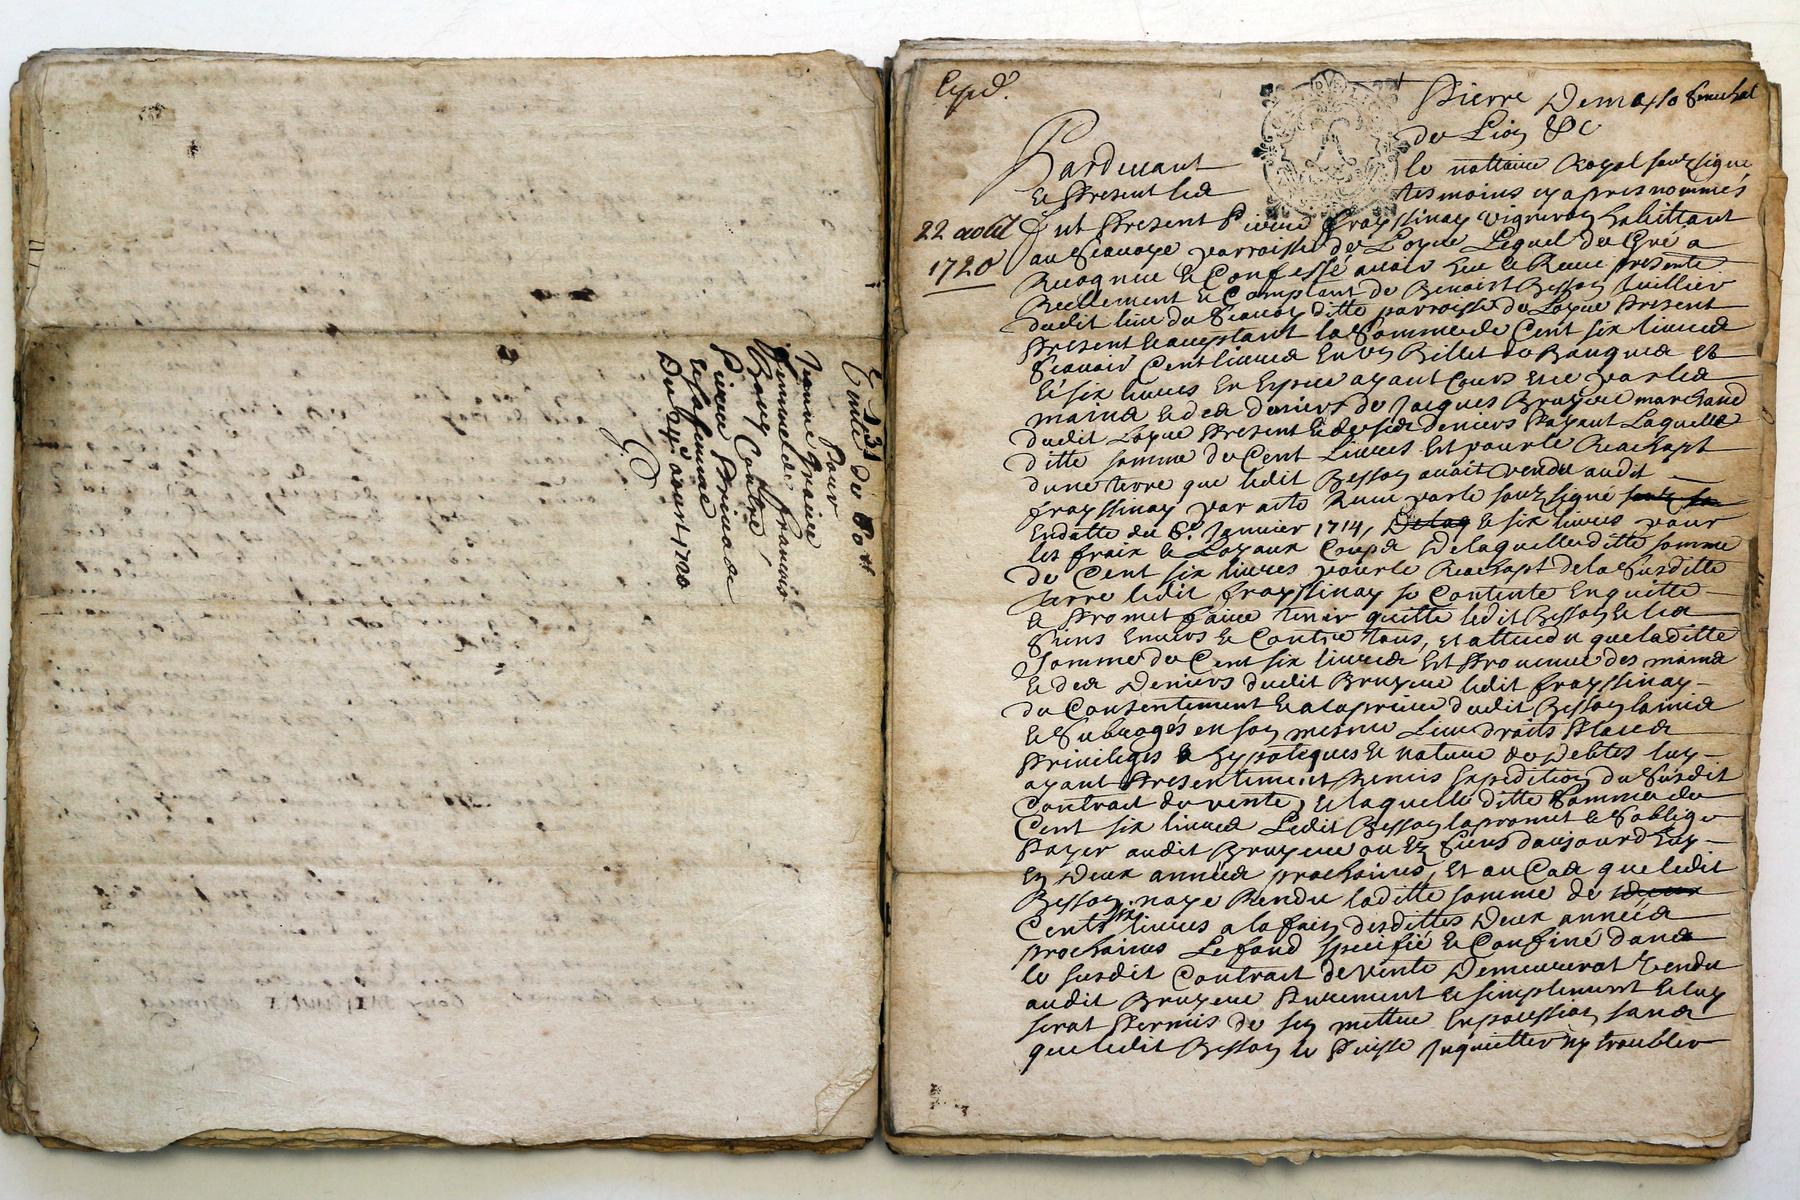 231
Vente de
Pour
Jeanne Graniee
femme de francois
Bony Contre
Pierre
et sa femme
Du 24 aoust 1720
Expd.
Pierre Demasso Senechal
de Lion &c
Pardevant le nottaire Royal soubsigné
et Presents les tesmoins cy apres nommés
22 aoust 1720
fut Present Pierre frayssinay vigneron habittant
au parroisse de Loyse Lequel de Gré a
Recogneu et Confessé avoir heu et Receu presente
Reellement et Comptant de Benoist Besson tuillier
dudit lieu du ditte parroisse de Loyse Present
Present et acceptant la Somme de Cent six livres
Scavoir Cent livres en un Billet de Banque et
les six livres en Espece ayant Cours et ce par les
mains et des deniers de Jacques Bruyere marchand
dudit Loyse Present et de ses deniers Payant Laquelle
ditte somme de Cent Livres est pour le Reachapt
dune terre que ledit Besson avoit vendu audit
frayssinay par acte Receu par le soubsigné
En datte du 6e Janvier 1714, et six livres pour
les fraix et Loyaux Coups De laquelle ditte somme
de Cent six livres pour le Reachapt de la Susditte
terre ledit frayssinay se Contente En quitte
et Promet faire tenir quitte ledit Besson et les
Siens Envers et Contre tous, et attendu que laditte
Somme de Cent six livres est Provenue des mains
et des Deniers dudit Bruyere ledit frayssinay
du Consentement et a la priere dudit Besson la mis
et Subrogés en son mesme Lieu droits Places
Privileges et hypoteques et nature de Debtes luy
ayant Presentement Remis Expedition du Susdit
Contract de vente, et laquelle ditte Somme de
Cent six livres Ledit Besson la promet et Soblige
Payer audit Bruyere ou Es Siens daujourdhuy
En Deux années prochaines, et au Cas que ledit
Besson naye Rendu laditte somme de
Cents six livres a la fain desdittes Deux années
prochaines Le fond specifié et Confiné dans
le susdit Contract de vente Demeurerat Vendu
audit Bruyere Purement et simplement et luy
serat Permis de sen mettre En possession sans
que ledit Besson le Puisse Inquietter ny troubler